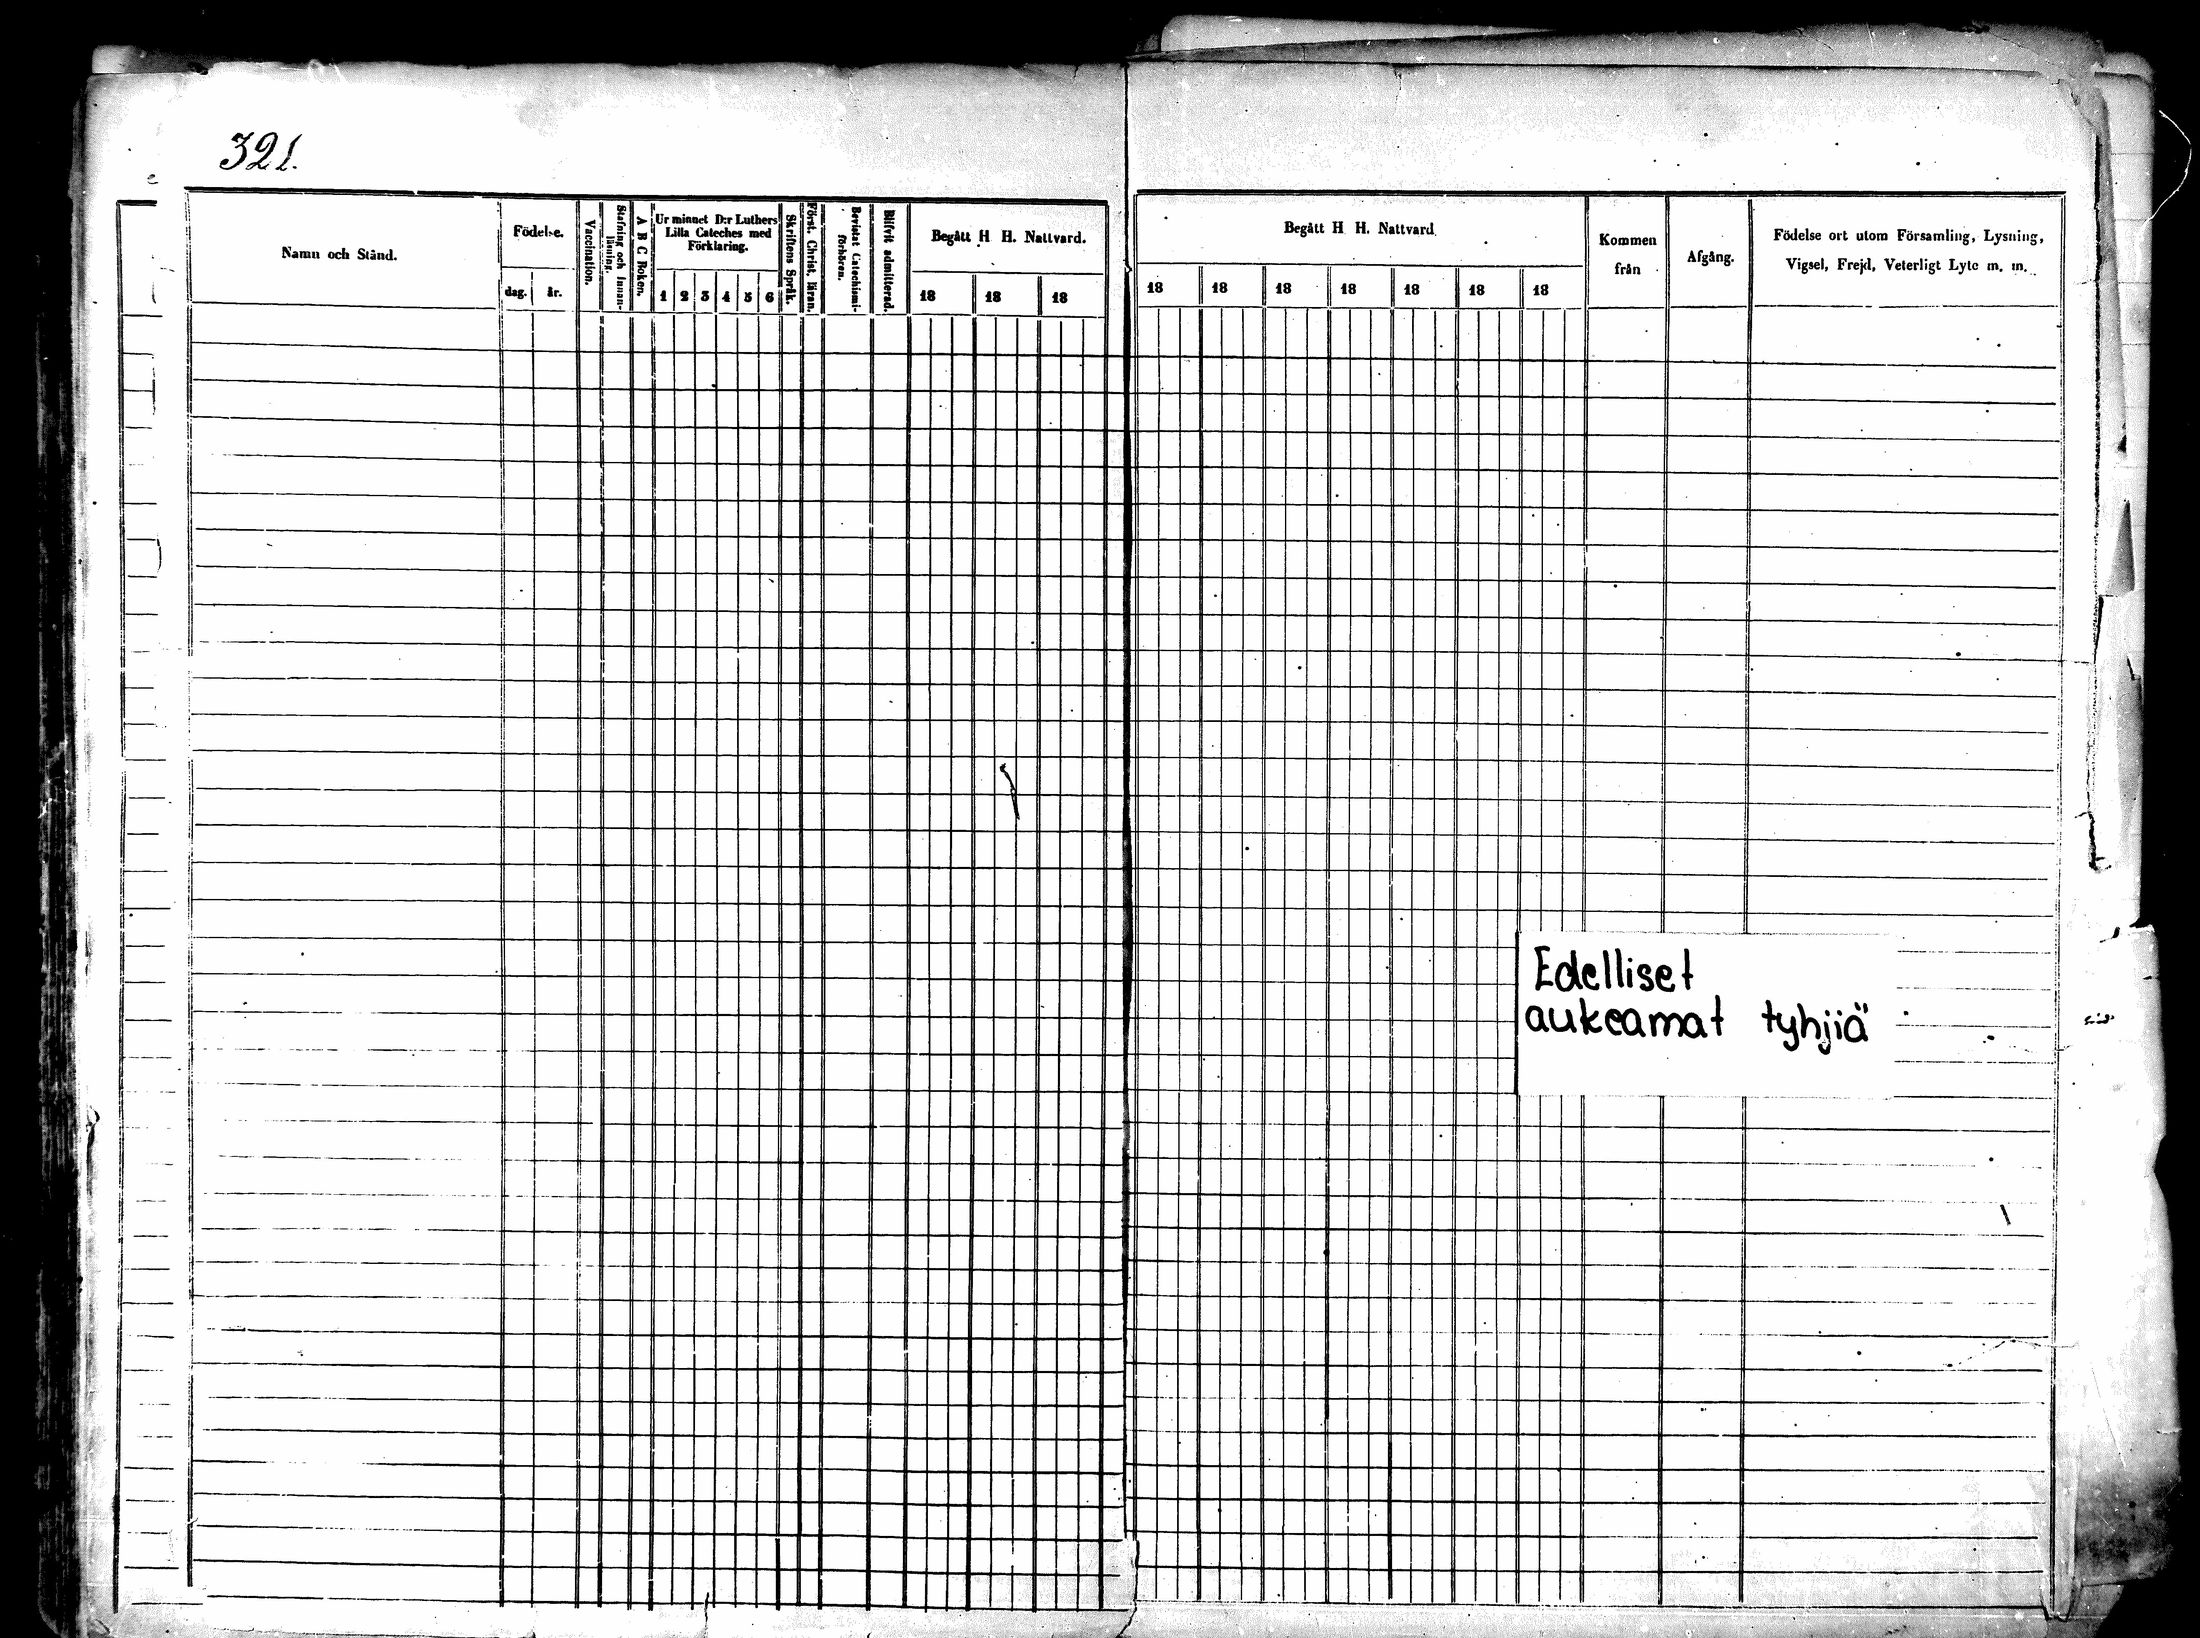 321.
Namn och Stånd.
Födelse.
dag. år.
Vaccination.
Stafning och Innan-
läsning.
A B C Boken.
Ur minnet D:r Luthers
Lilla Cateches med
Förklaring.
1 2 3 4 5 6
Skriftens Språk.
Först. Christ. läran.
Bevistat Catechismi-
förhören.
Blifvit admitterad.
Begått H H. Nattvard.
18 18 18
Begått H H. Nattvard
18 18 18 18 18 18 18
Kommen
från
Afgång.
Födelse ort utom Församling, Lysning,
Vigsel, Frejd, Veterligt Lyte m. m.
Edelliset
aukeamat tyhjiä